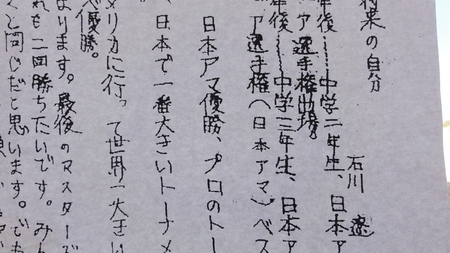 将来の自分
石川 遼
年後……中学二年生、日本ア
ュア選手権出場。
年後……中学三年生、日本ア
ア選手権(日本アマ)ベス
日本アマ優勝、プロのトー
日本で一番大きいトーナメ
メリカに行って世界一大きい
ズ優勝。
なります。最後のマスターズ
れも二回勝ちたいです。みん
くと同じだと思います。でも